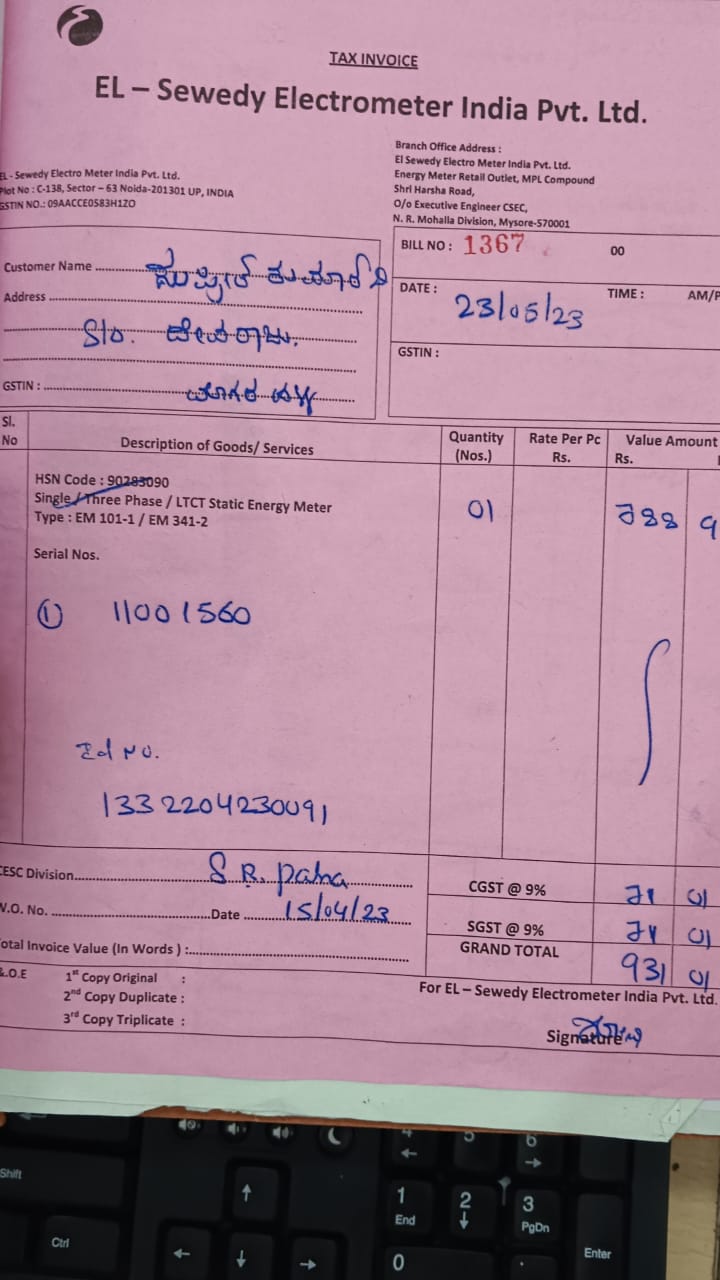 TAX INVOICE
EL – Sewedy Electrometer India Pvt. Ltd.
EL - Sewedy Electro Meter India Pvt. Ltd.
Plot No : C-138, Sector – 63 Noida-201301 UP, INDIA
GSTIN NO.: 09AACCE0583H1ZO
Branch Office Address :
El Sewedy Electro Meter India Pvt. Ltd.
Energy Meter Retail Outlet, MPL Compound
Shri Harsha Road,
O/o Executive Engineer CSEC,
N. R. Mohalla Division, Mysore-570001
Customer Name ಕುಮಾರ್
Address
S/o. ದೇವರಾಜು.
GSTIN :
BILL NO : 1367 00
DATE : 23/05/23 TIME : AM/P
GSTIN :
Sl. No Description of Goods/ Services Quantity (Nos.) Rate Per Pc Rs. Value Amount Rs.
HSN Code : 90283090
Single / Three Phase / LTCT Static Energy Meter
Type : EM 101-1 / EM 341-2
01 788 9
Serial Nos.
① 11001560
Rd No.
1332204230091
CESC Division S R. patna
W.O. No. Date 15/04/23
Total Invoice Value (In Words ) :
CGST @ 9% 71 01
SGST @ 9% 71 01
GRAND TOTAL 931 01
&.O.E 1st Copy Original :
2nd Copy Duplicate :
3rd Copy Triplicate :
For EL – Sewedy Electrometer India Pvt. Ltd.
Signature
Shift
Ctrl
4
5
6
1
End
2
3
PgDn
0
Enter